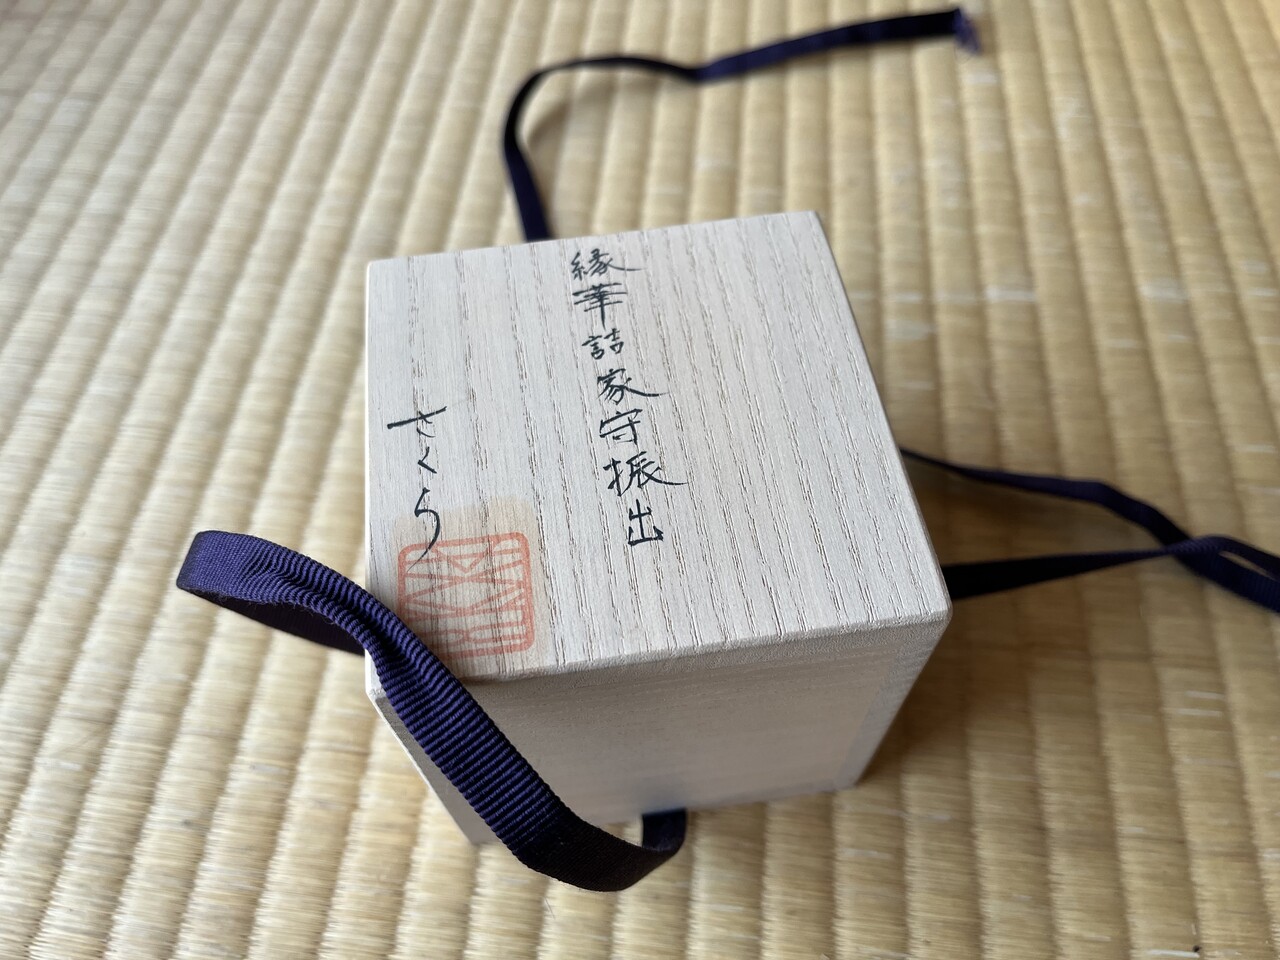 縁華詰家守振出
さくら